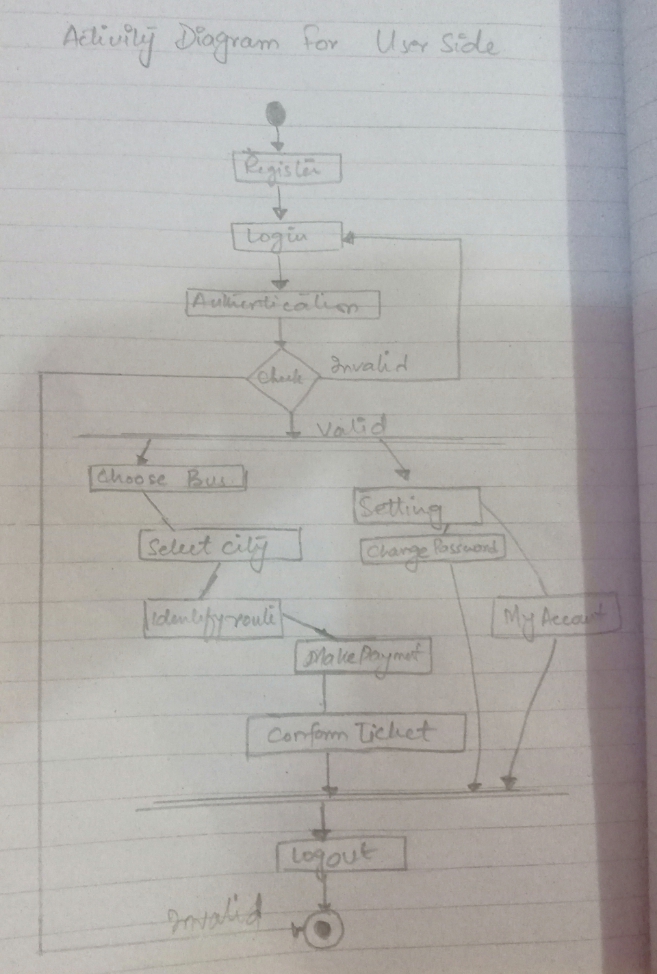 Activity Diagram for User Side
Register
Login
Authentication
Check
Invalid
Valid
Choose Bus
Setting
Select city
Change Password
Identify route
My Accout
Make Paymet
Conform Ticket
Logout
Invalid